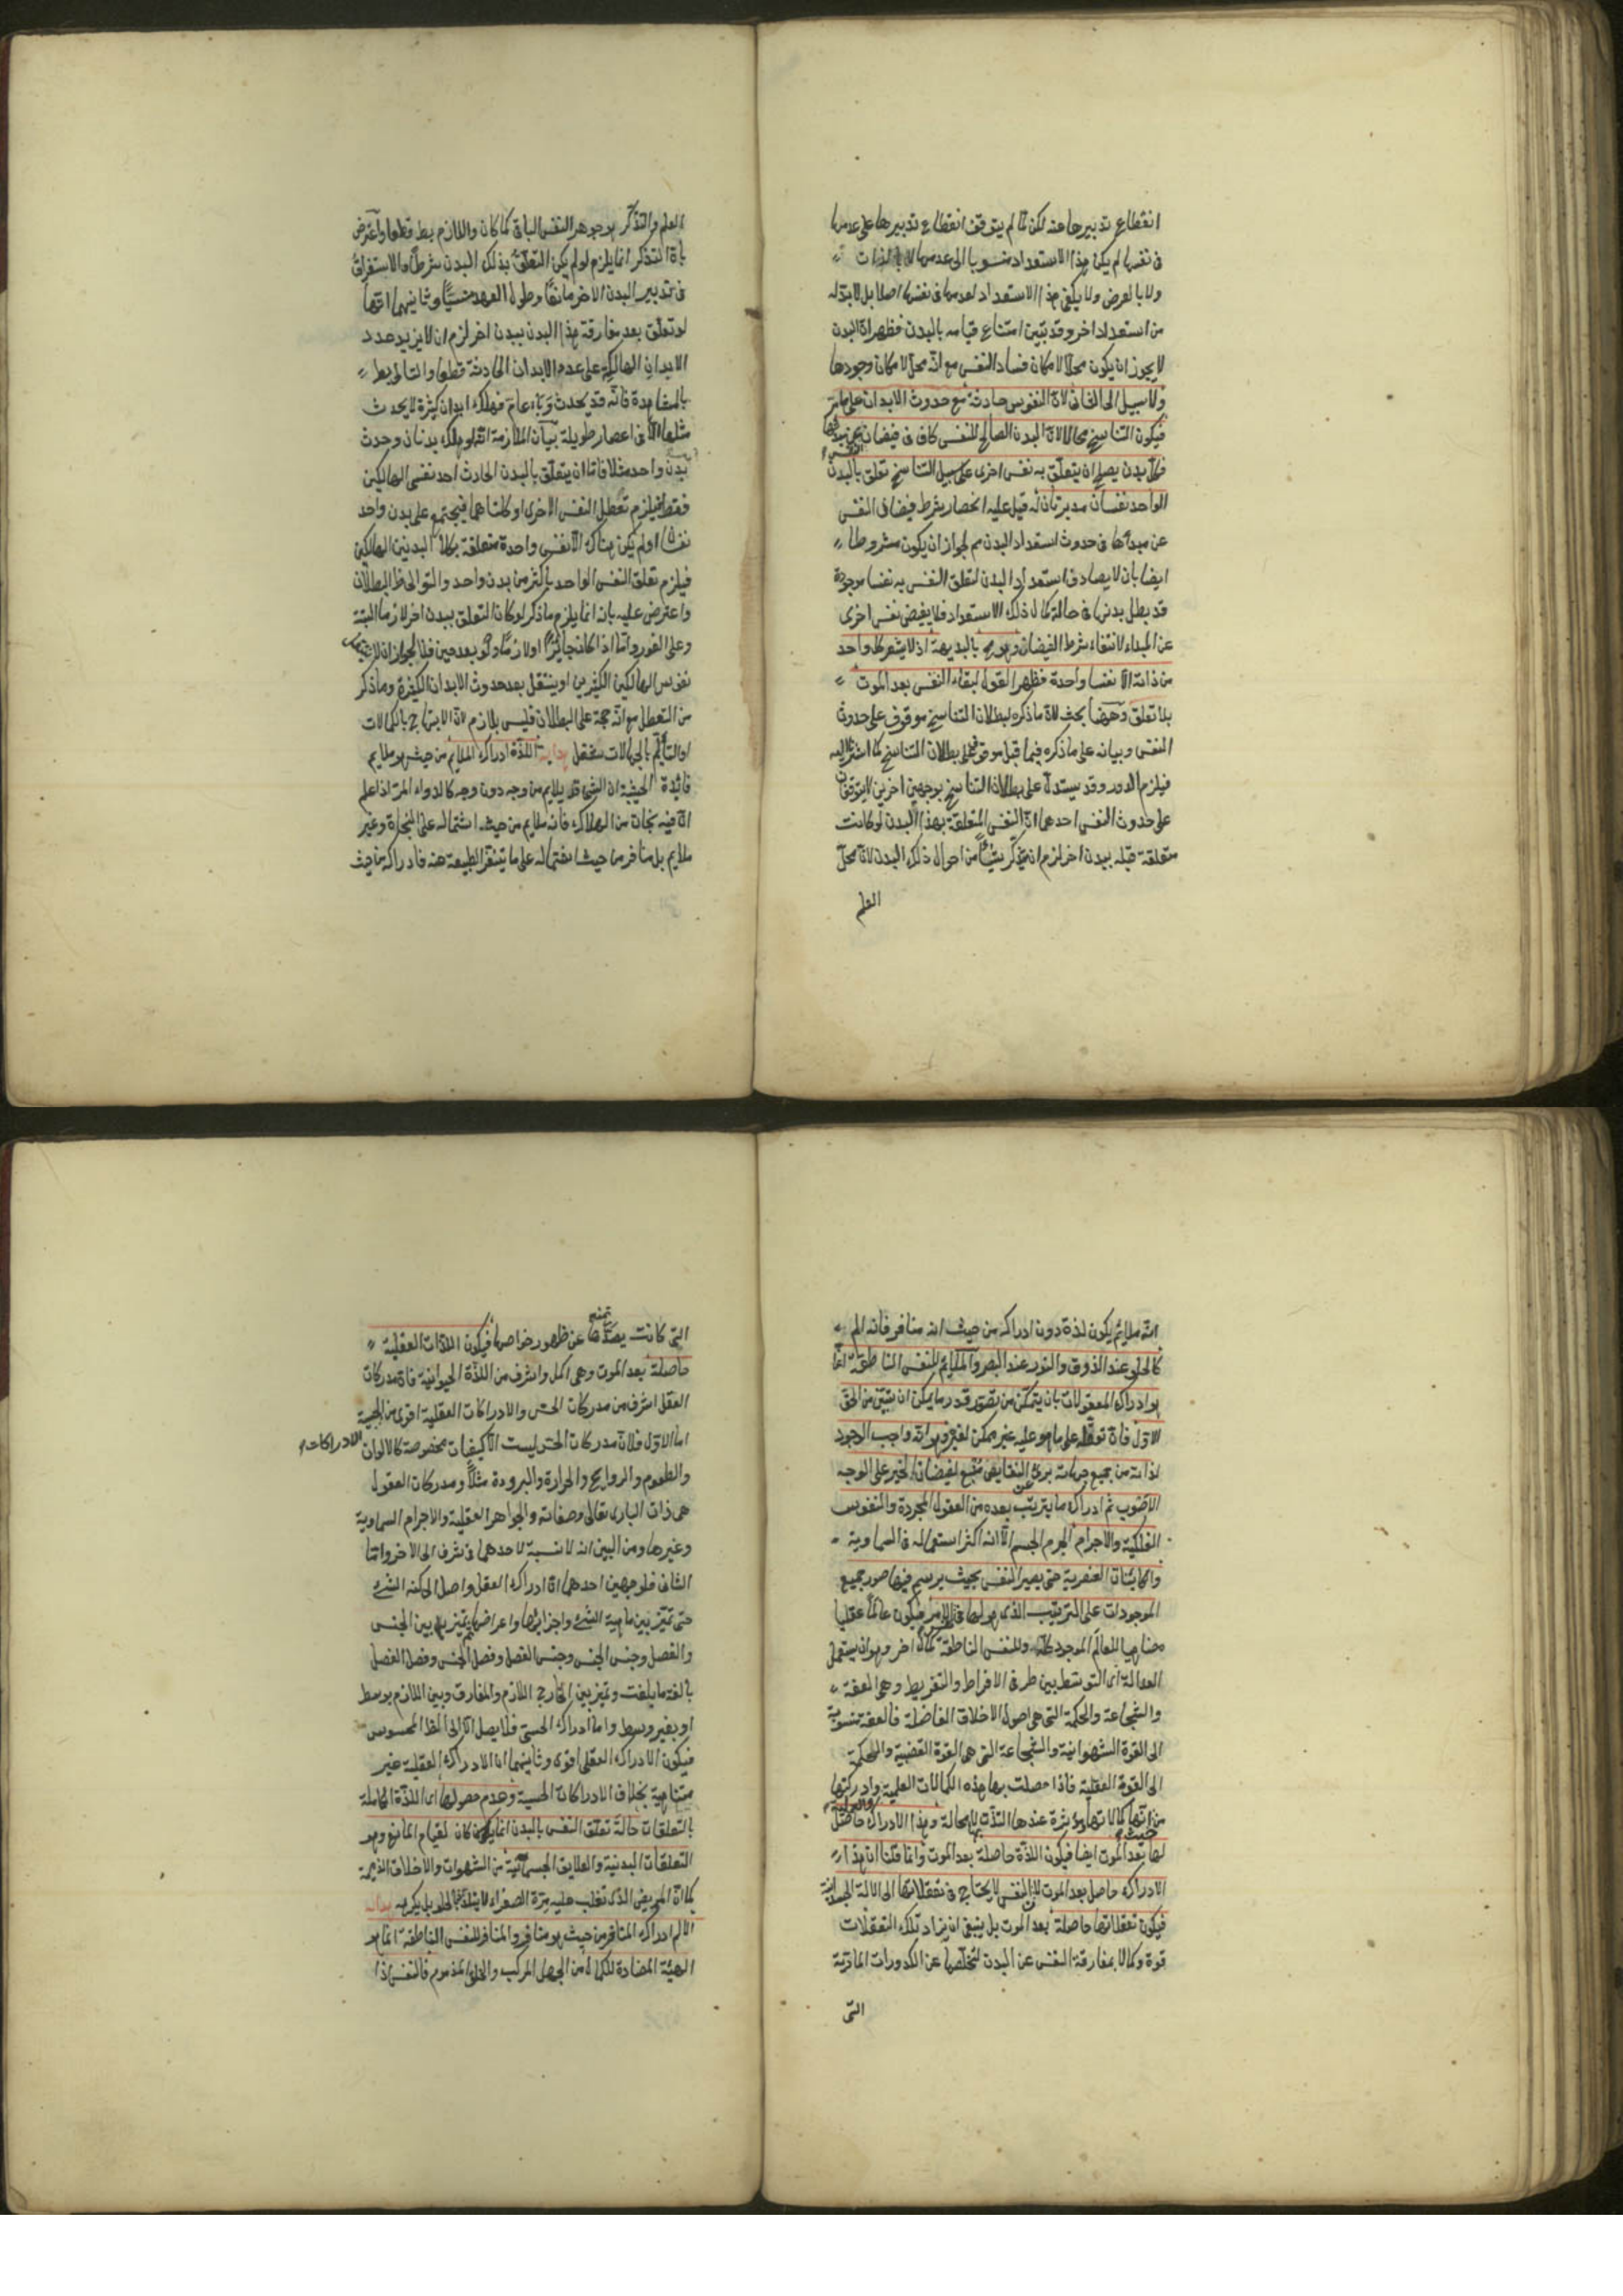 انقطاع تدبيرها عنه لكن لما لم يتوقف انقطاع تدبيرها على عدمها
فى نفسها لم يكن هذا الاستعداد منسوبا الى عدمها لا بالذات
ولا بالعرض ولا يكفى هذا الاستعداد لعدمها فى نفسها اصلا بل لابد له
من استعداد اخر وقد تبين امتناع قيامه بالبدن فظهر ان البدن
لا يجوز ان يكون محلا لامكان فساد النفس مع انه محل لامكان وجودها
ولا سبيل الى الثانى لان النفوس حادثة مع حدوث الابدان على ما مر
فيكون التناسخ محالا لان البدن الصالح للنفس كاف فى فيضان
فكل بدن يصلح ان يتعلق به نفس اخرى على سبيل التناسخ تعلق بالبدن
الواحد نفسان مدبرتان له قيل عليه انحصار شرط فيضان النفس
عن مبدأها فى حدوث استعداد البدن مم لجواز ان يكون مشروطا
ايضا بان لا يصادف استعداد البدن لتعلق النفس به نفسا موجودة
قد بطل بدنها فى حالة كمال ذلك الاستعداد فلا يفيض نفس اخرى
عن المبداء لانتفاء شرط الفيضان وهو مح بالبديهة اذ لا يشعر كل واحد
من ذاته الا نفسا واحدة فظهر القول لبقاء النفس بعد الموت
بلا تعلق وههنا بحث لان ما ذكره لبطلان التناسخ موقوف على حدوث
النفس وبيانه على ما ذكره فيما قبل موقوف على بطلان التناسخ كما اشرنا اليه
فيلزم الدور وقد يستدل على بطلان التناسخ بوجهين اخرين لا يتوقفان
على حدوث النفس احدهما ان النفس المتعلقة بهذا البدن لو كانت
متعلقة قبله ببدن اخر لزم ان يتذكر شيئا من احوال ذلك البدن لان محل
العلم
العلم والتذكر هو جوهر النفس الباقى كما كان واللازم بط قطعا واعترض
بان التذكر انما يلزم لو لم يكن التعلق بذلك البدن شرطا والاستغراق
فى تدبير البدن الاخر مانعا وطول العهد منسيا وثانيهما انها
لو تعلق بعد مفارقة هذا البدن ببدن اخر لزم ان لا يزيد عدد
الابدان الهالكة على عدد الابدان الحادثة قطعا والتالى بط
بالمشاهدة فانه قد يحدث وباء عام فيهلك ابدان كثيرة لا يحدث
مثلها الا فى اعصار طويلة بيان الملازمة انه لو هلك بدنان وحدث
بدن واحد مثلا فاما ان يتعلق بالبدن الحادث احد نفسى الهالكين
فقط فيلزم تعطل النفس الاخرى او كلتاهما فيجتمع على بدن واحد
نفسان او لم يكن هناك الا نفس واحدة متعلقة بكلا البدنين الهالكين
فيلزم تعلق النفس الواحد باكثر من بدن واحد والتوالى ظ البطلان
واعترض عليه بانه انما يلزم ما ذكر لو كان التعلق ببدن اخر لازما البتة
وعلى الفور واما اذا كان جائزا او لازما ولو بعد حين فلا لجواز ان لا
نفوس الهالكين الكثيرين او ينتقل بعد حدوث الابدان الكثيرة وما ذكر
من التعطل مع انه حجة على البطلان فليس بلازم لان الابتهاج بالكمالات
او التألم بالجهالات شغل هداية اللذة ادراك الملايم من حيث هو ملايم
فائدة الحيثية ان الشئ قد يلايم من وجه دون وجه كالدواء المر اذا علم
ان فيه نجاة من الهلاك فانه ملايم من حيث اشتماله على النجاة وغير
ملايم بل منافر من حيث اشتماله على ما يتنفر الطبيعة منه فادراكه من حيث
انه ملايم يكون لذة دون ادراكه من حيث انه منافر فانه الم
كالحلو عند الذوق والنور عند البصر والملايم للنفس الناطقة انما
هو ادراك المعقولات بان يتمكن من تصور قدر ما يمكن ان يتبين من الحق
الاول فان تعقله على ما هو عليه غير ممكن لغيره وهو انه واجب الوجود
لذاته من جميع جهاته برئ عن النقايص منبع لفيضان الخير على الوجه
الاصوب ثم ادراك ما يترتب بعده من العقول المجردة والنفوس
الفلكية والاجرام الجرم الجسم الا انه اكثر استعماله فى السماوية
والكائنات العنصرية حتى يصير النفس بحيث يرتسم فيها صور جميع
الموجودات على الترتيب الذى هو لها فى نفس الامر فيكون عالما عقليا
مضاهيا للعالم الموجود كله وللنفس الناطقة كمال اخر وهو ان يستعمل
العدالة اى التوسط بين طرفى الافراط والتفريط وهى العفة
والشجاعة والحكمة التى هى اصول الاخلاق الفاضلة فالعفة منسوبة
الى القوة الشهوانية والشجاعة التى هى القوة الغضبية والحكمة
الى القوة العقلية فاذا حصلت بها هذه الكمالات العلمية وادركتها
والعملية
من حيث انها كمالاتها مؤثرة عندها التذت بها لا محالة وهذا الادراك حاصل
لها بعد الموت ايضا فيكون اللذة حاصلة بعد الموت وانما قلنا ان هذا
الادراك حاصل بعد الموت لان النفس لا يحتاج فى تعقلاتها الى الالة الجسمانية
فيكون تعقلاتها حاصلة بعد الموت بل ينبغى ان يزاد تلك التعقلات
قوة وكمالا بمفارقة النفس عن البدن لتخلصها عن الكدورات المادية
التى
التى كانت يصدها عن ظهور خواصها فيكون اللذات العقلية
تمنع
حاصلة بعد الموت وهى اكمل واشرف من اللذة الحيوانية فان مدركات
العقل اشرف من مدركات الحس والادراكات العقلية اقوى من الحسية
الادراكات
اما الاول فلان مدركات الحس ليست الا كيفيات مخصوصة كالالوان
والطعوم والروايح والحرارة والبرودة مثلا ومدركات العقول
هى ذات البارى تعالى وصفاته والجواهر العقلية والاجرام السماوية
وغيرها ومن البين انه لا نسبة لاحدهما فى شرف الى الاخر واما
الثانى فلوجهين احدهما ان ادراك العقل واصل الى كنه الشئ
حتى تميز بين ماهية الشئ واجزائها واعراضها ثم يتميز بين الجنس
والفصل وجنس الجنس وجنس الفصل وفصل الجنس وفصل الفصل
بالغة ما بلغت وتميز بين الخارج اللازم والمفارق وبين اللازم بوسط
او بغير وسط واما ادراك الحسى فلا يصل الا الى المحسوس
فيكون الادراك العقلى اقوى وثانيهما ان الادراك العقلية غير
متناهية بخلاف الادراكات الحسية وعدم حصولها اى اللذة الكاملة
بالتعلقات حالة تعلق النفس بالبدن انما كان لقيام المانع وهو
التعلقات البدنية والعلايق الجسمانية من الشهوات والاخلاق الذميمة
كما ان المريض الذى تغلب عليه مرة الصفراء لا يلتذ بالحلو بل يكرهه هداية
الالم ادراك المنافر من حيث هو منافر والمنافر للنفس الناطقة انما هو
الهيئة المضادة للكمال من الجهل المركب والخلق المذموم فالنفس اذا